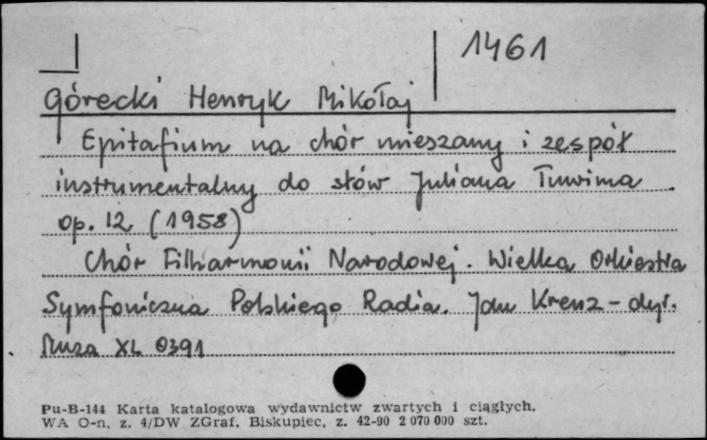 1461
Górecki Henryk Mikołaj
Epitafium na chór mieszany i zespół
instrumentalny do słów Juliana Tuwima
op. 12 (1958)
Chór Filharmonii Narodowej. Wielka Orkiestra
Symfoniczna Polskiego Radia. Jan Krenz - dyr.
Muza XL 0391
Pu-B-144 Karta katalogowa wydawnictw zwartych i ciągłych.
WA O-n, z. 4/DW ZGraf. Biskupiec, z. 42-90 2 070 000 szt.